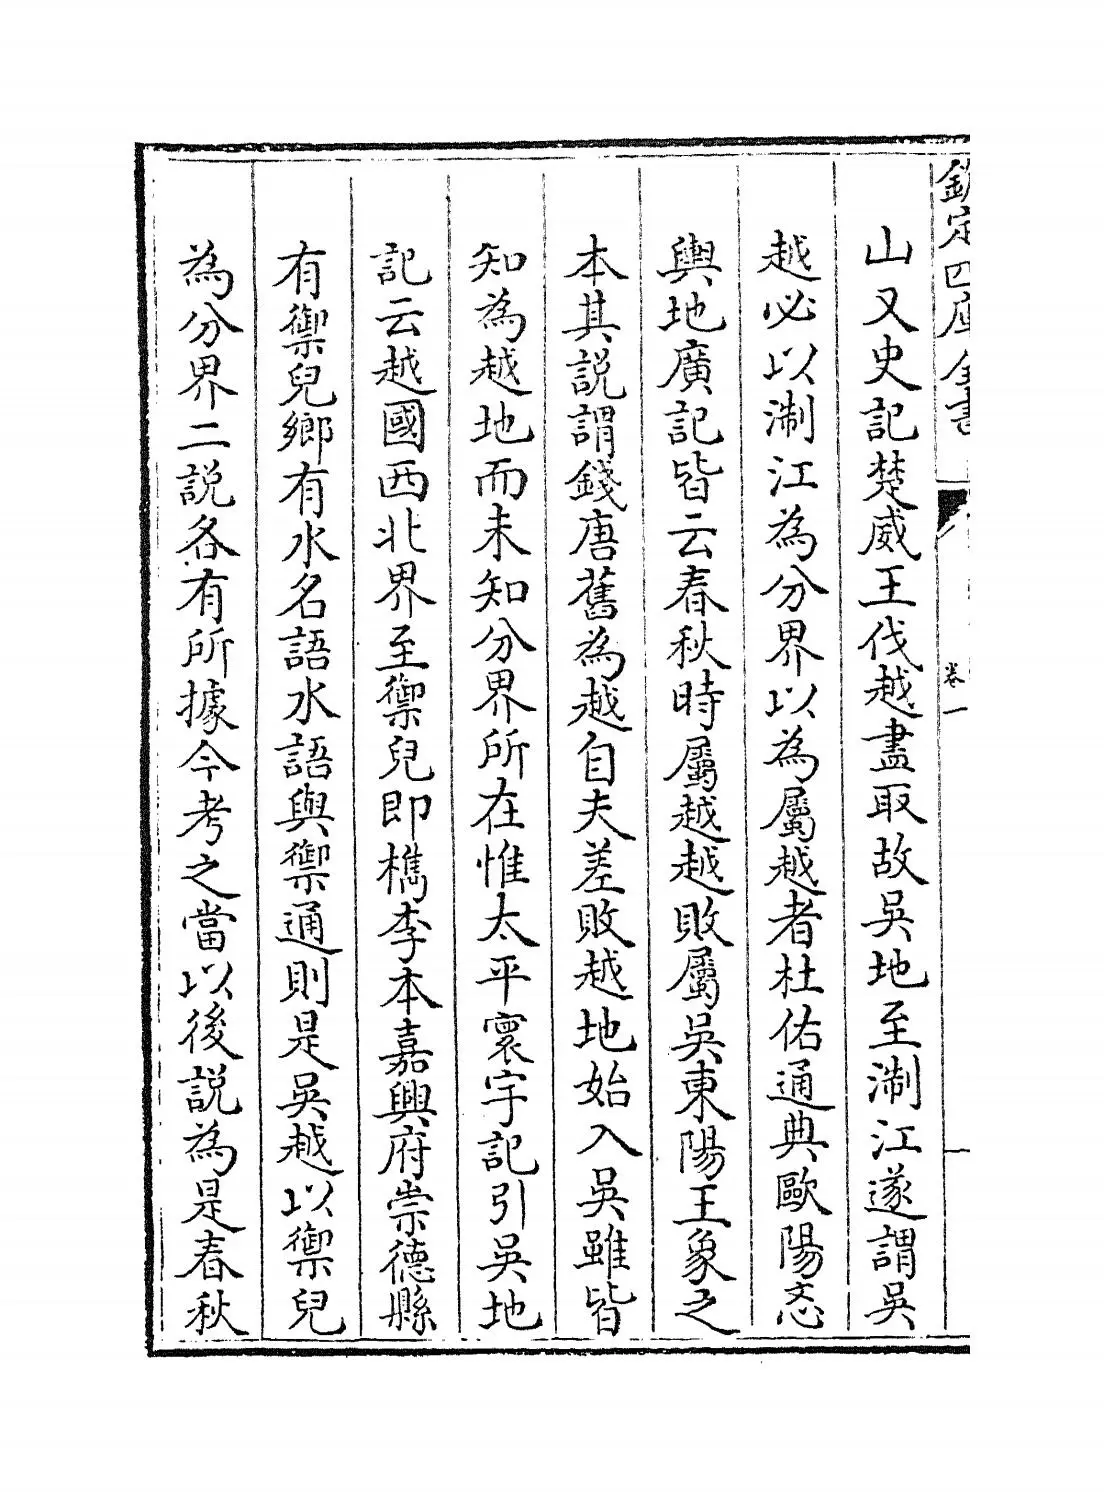 欽定四庫全書
卷一
山又史記楚威王伐越盡取故吳地至淛江遂謂吳
越必以淛江為分界以為屬越者杜佑通典歐陽忞
輿地廣記皆云春秋時屬越越敗屬吳東陽王象之
本其説謂錢唐舊為越自夫差敗越地始入吳雖皆
知為越地而未知分界所在惟太平寰宇記引吳地
記云越國西北界至禦兒即檇李本嘉興府崇德縣
有禦兒鄉有水名語水語與禦通則是吳越以禦兒
為分界二説各有所據今考之當以後説為是春秋